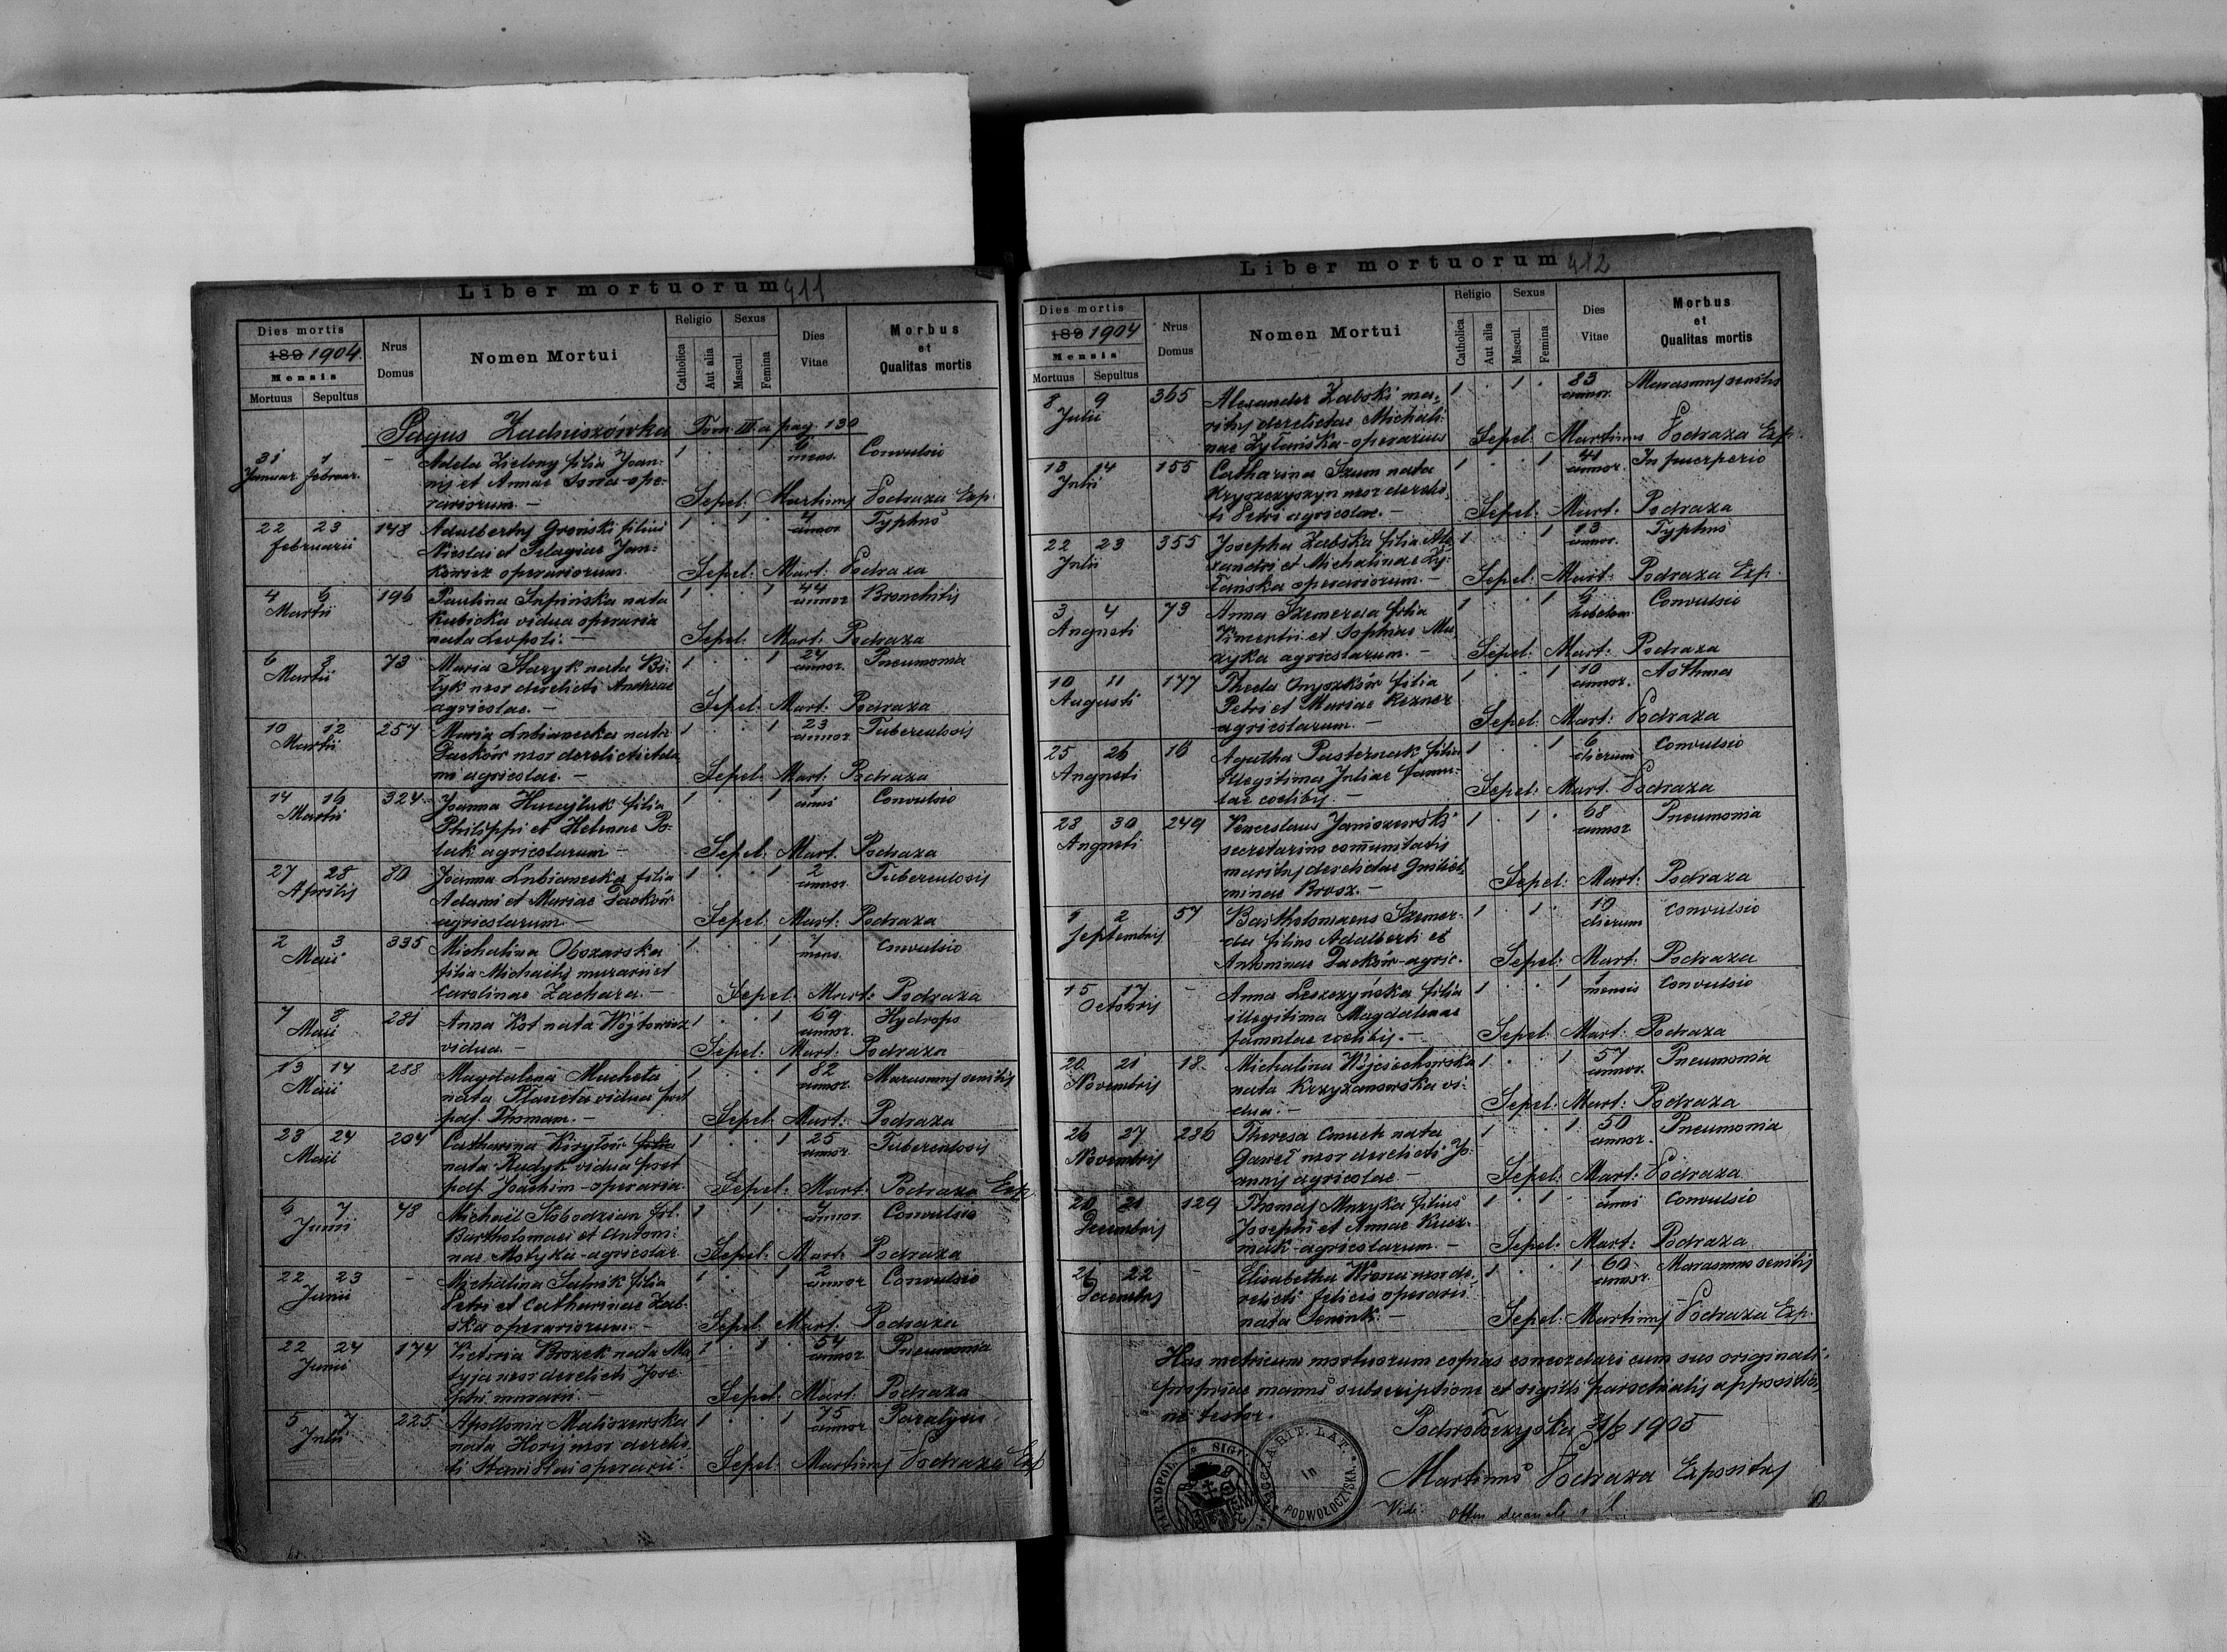 Liber mortuorum 411
Dies mortis
189 1904
Mensis
Mortuus Sepultus
Nrus Domus
Nomen Mortui
Religio
Catholica
Aut alia
Sexus
Mascul.
Femina
Dies Vitae
Morbus et Qualitas mortis
Pagus Zadniszówka Tom III a pag. 130
31 1 - Adela Zielony filia Joan- 1 . . 1 6 Convulsio
Januar. Februar. nis et Annae Sowa - ope- mens.
rariorum. - Sepel: Martinus Podraza Exp.
22 23 148 Adalbertus Groński filius 1 . 1 . 4 Typhus
Februarii Nicolai et Pelagiae Jan- annor
kewicz operariorum. Sepel: Mart: Podraza
4 6 196 Paulina Supińska nata 1 . . 1 44 Bronchitis
Martii Kubicka vidua operaria annor
nata Leopoli. - Sepel: Mart: Podraza
6 8 73 Maria Stazyk nata Bi- 1 . . 1 24 Pneumonia
Martii łyk uxor derelicti Andreae annor.
agricolae. - Sepel: Mart: Podraza
10 12 257 Maria Lubianecka nata 1 . . 1 23 Tuberculosis
Martii Daćków uxor derelicti Ada- annor
mi agricolae. - Sepel: Mart: Podraza
14 16 324 Joanna filia 1 . . 1 1 Convulsio
Martii Philippi et Helenae Po- anni
lak agricolarum - Sepel: Mart. Podraza
27 28 80 Joanna Lubianecka filia 1 . . 1 2 Tuberculosis
Aprilis Adami et Mariae Daćków annor.
agricolarum. - Sepel: Mart: Podraza
2 3 335 Michalina Obozarska 1 . . 1 7 Convulsio
Maii filia Michaelis murarii et mens.
Carolinae Zachara. - Sepel: Mart: Podraza
7 8 281 Anna Kot nata Wójtowicz 1 . . 1 69 Hydrops
Maii vidua. - annor. Sepel: Mart: Podraza
13 14 288 Magdalena Macheta 1 . . 1 82 Marasmus senilis
Maii nata Planeta vidua post annor.
pdf. Thomam. - Sepel: Mart: Podraza
23 24 204 Catharina Kiryłów filia 1 . . 1 25 Tuberculosis
Maii nata Rudyk vidua post annor.
pdf. Joachim - operaria Sepel: Mart: Podraza Exp.
6 7 48 Michael Słobodzian fil. 1 . 1 . 4 Convulsio
Junii Bartholomaei et Antoni- annor
nae Motyka - agricolar. Sepel: Mart: Podraza
22 23 - Michalina Salnik filia 1 . . 1 2 Convulsio
Junii Petri et Catharinae Zab- annor
ska operariorum. - Sepel: Mart. Podraza
22 24 174 Victoria Brozek nata Ma- 1 . 1 . 54 Pneumonia
Junii tyja uxor derelicti Jose- annor
phi murarii - Sepel: Mart: Podraza
5 7 225 Apollonia Maliszewska 1 . . 1 75 Paralysis
Julii nata Horij uxor derelic- annor
ti Stanislai operarii. Sepel: Martinus Podraza Exp
Liber mortuorum 412
Dies mortis
189 1904
Mensis
Mortuus Sepultus
Nrus Domus
Nomen Mortui
Religio
Catholica
Aut alia
Sexus
Mascul.
Femina
Dies Vitae
Morbus et Qualitas mortis
8 9 365 Alexander Zabski ma- 1 . 1 . 83 Marasmus senilis
Julii ritus derelictae Michali- annor.
nae Zytańska - operarius Sepel: Martinus Podraza Exp.
13 14 155 Catharina Szum nata 1 . . 1 41 In puerperio
Julii Kryszczyszyn uxor derelic- annor.
ti Petri agricolae. - Sepel: Mart: Podraza
22 23 355 Josepha Zabska filia Ale- 1 . . 1 13 Typhus
Julii xandri et Michalinae Zy- annor.
tańska operariorum. - Sepel: Mart: Podraza Exp.
3 4 73 Anna Szemerda filia 1 . . 1 Convulsio
Augusti et Sophiae Mu- hebdom.
zyka agricolarum. - Sepel: Mart: Podraza
10 11 177 Thecla Onyszków filia 1 . . 1 10 Asthma
Augusti Petri et Mariae Rezner annor.
agricolarum. - Sepel: Mart: Podraza
25 26 16 Agatha Pasternak filia 1 . . 1 6 Convulsio
Augusti illegitima Juliae famu- dierum
lae coelibis. - Sepel: Mart. Podraza
28 30 249 Venceslaus Janiszewski 1 . 1 . 68 Pneumonia
Augusti secretarius communitatis annor
maritus derelictae Guilel-
minae Brosz. - Sepel: Mart: Podraza
1 2 57 Bartholomaeus Szemer- 1 . 1 . 10 Convulsio
Septembris da filius Adalberti et dierum
Antoninae Daćków - agric. Sepel: Mart: Podraza
15 17 - Anna Leszczyńska filia 1 . . 1 1 Convulsio
Octobris illegitima Magdalenae mensis
famulae coelibis. - Sepel: Mart: Podraza
20 21 18. Michalina Wojciechowska 1 . . 1 57 Pneumonia
Novembris nata Krzyżanowska vi- annor.
dua. - Sepel: Mart: Podraza
26 27 286 Theresa Cmuch nata 1 . . 1 50 Pneumonia
Novembris Gaweł uxor derelicti Jo- annor.
annis agricolae - Sepel: Mart: Podraza
20 21 129 Thomas Muzyka filius 1 . 1 . 1 Convulsio
Decembris Josephi et Annae Kucz- anni
mak - agricolarum. - Sepel: Mart: Podraza
21 22 - Elisabetha Wrona uxor de- 1 . . 1 60 Marasmus senilis
Decembris relicti Felicis operarii annor.
nata Seniuk. - Sepel: Martinus Podraza Exp.
Has metricum mortuorum copias concordari cum suo originali,
propriae manus subscriptione et sigilli parochialis appositio-
ne testor.
Podwołoczyska 1905
Martinus Podraza Expositus
Vidi
ECCLA RIT. LAT. in PODWOŁOCZYSKA
TARNOPOL * SIGI